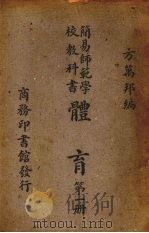 方萬邦編
簡易師範學
校教科書
體育
第一册
商務印書館發行